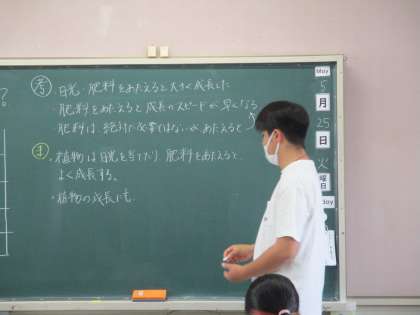 ?
考 日光・肥料をあたえると大きく成長した
・肥料をあたえると成長のスピードが早くなる
・肥料は、絶対に必要ではないがあたえると
ま ・植物は日光を当てたり、肥料をあたえると、
よく成長する。
・植物の成長にも
May
5
月
25
日
火
曜日